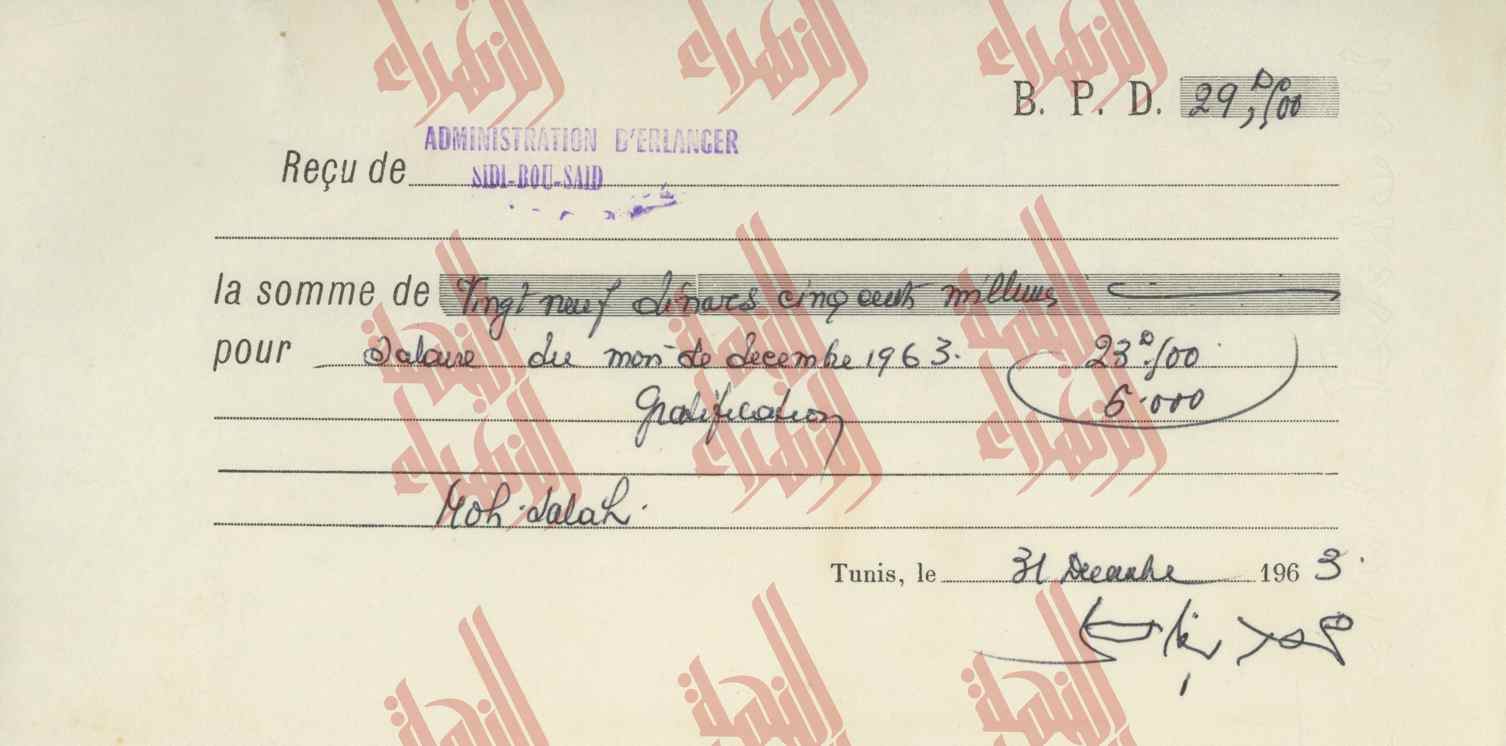 B. P. D. 29,D500
Reçu de ADMINISTRATION D'ERLANGER
SIDI-BOU-SAID
la somme de Vingt neuf dinars cinq cents millimes
pour Salaire du mois de decembre 1963. 23D.500
Gratification 6.000
Moh. Salah.
Tunis, le 31 Decembre 1963.
محمد
النجمة الزهراء
النجمة الزهراء
النجمة الزهراء